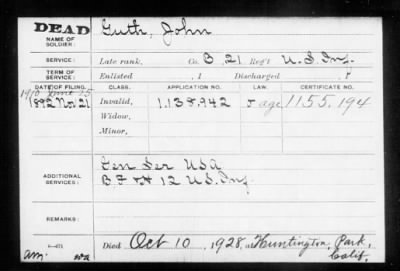 DEAD Guth, John
NAME OF SOLDIER:
SERVICE: Late rank, Co. B 21 Reg't U.S. Inf.
TERM OF SERVICE: Enlisted , 1 Discharged , 1
DATE OF FILING. CLASS. APPLICATION NO. LAW. CERTIFICATE NO.
1892 Nov. 21 Invalid, 1.138.942 age 1155.194
Widow,
Minor,
Gen Ser USA
ADDITIONAL SERVICES: 12 U.S. Inf.
REMARKS:
Died Oct 10, 1928, at Huntington, Park,
Calif.
am.